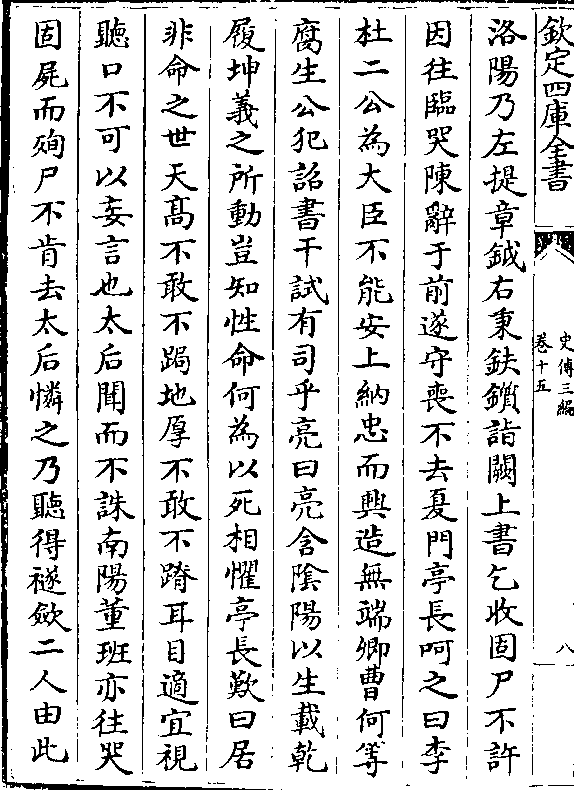 欽定四庫全書
史傳三編
卷十五
八
洛陽乃左提章鉞右秉鈇鑕詣闕上書乞收固尸不許
因往臨哭陳辭于前遂守喪不去夏門亭長呵之曰李
杜二公為大臣不能安上納忠而興造無端卿曹何等
腐生公犯詔書干試有司乎亮曰亮含隂陽以生載乾
履坤義之所動豈知性命何為以死相懼亭長歎曰居
非命之世天髙不敢不跼地厚不敢不蹐耳目適宜視
聽口不可以妄言也太后聞而不誅南陽董班亦往哭
固屍而殉尸不肯去太后憐之乃聽得襚斂二人由此